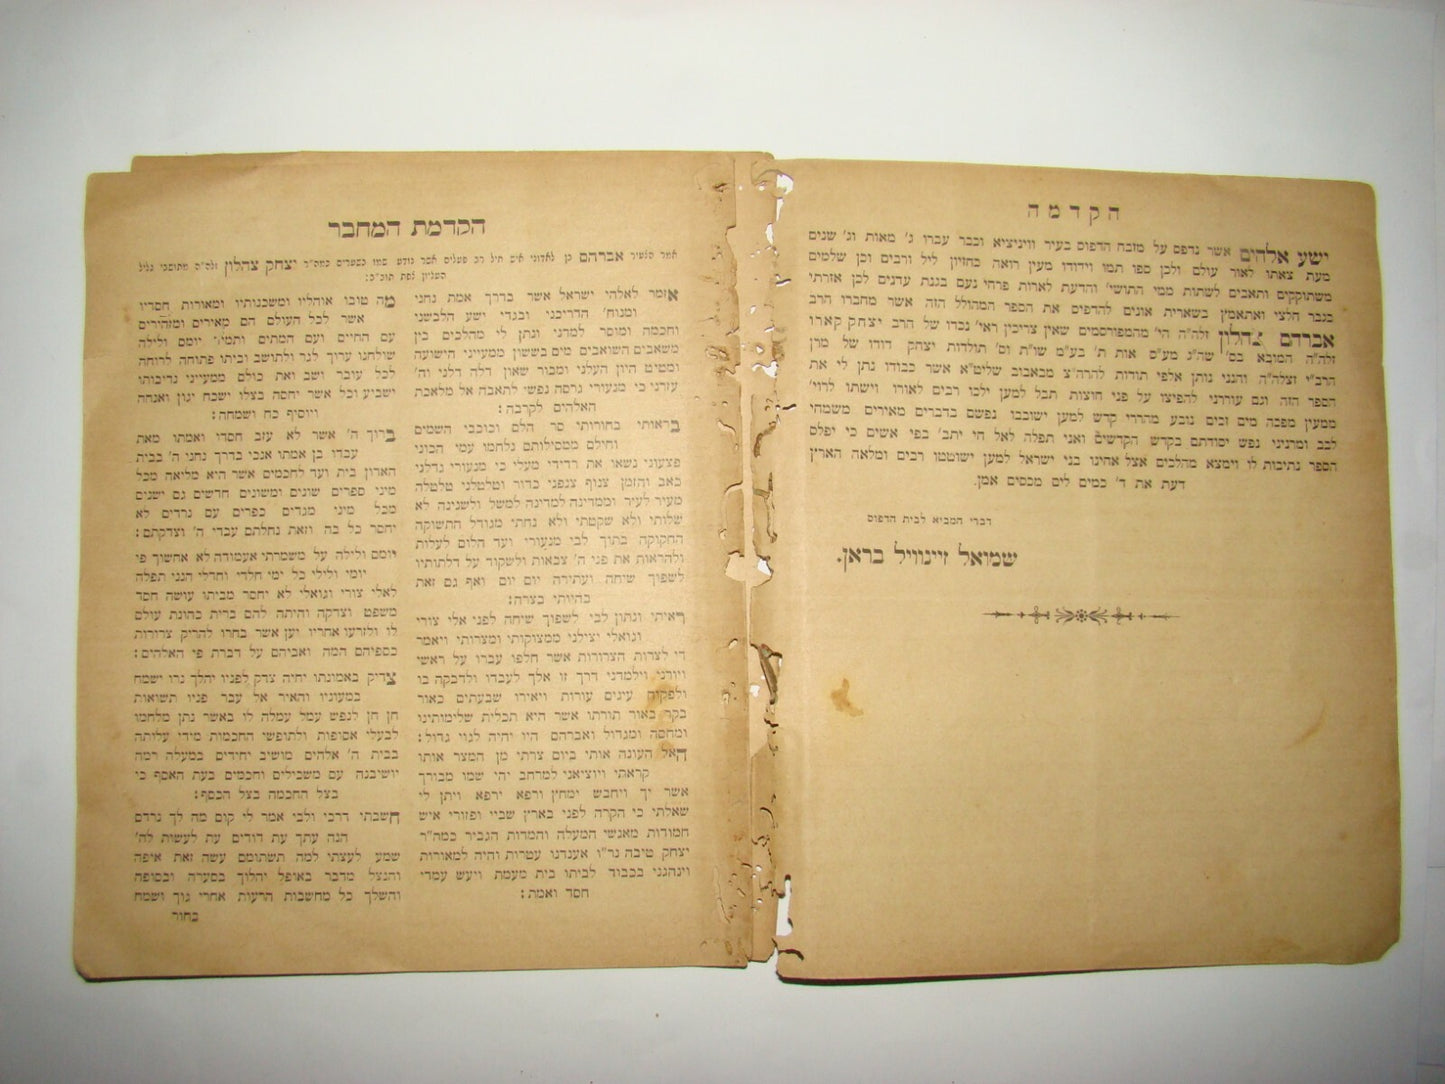 הקדמה
ישע אלהים אשר נדפס על מזבח הדפוס בעיר וויניציא וכבר עברו ג׳ מאות וג׳ שנים
מעת צאתו לאור עולם ולכן ספו תמו וידודו מעין רואה כחזיון ליל ורבים וכן שלמים
משתוקקים ותאבים לשתות ממי התושי׳ והדעת לארות פרחי נעם בגנת עדנים לכן אזרתי
כגבר חלצי ואתאמץ בשארית אונים להדפיס את הספר המהולל הזה אשר מחברו הרב
אברהם צהלון זלה״ה הי׳ מהמפורסמים שאין צריכין ראי׳ נכדו של הרב יצחק קארו
זלה״ה המובא בס׳ שה״ג מע״ס אות ת׳ בע״מ שו״ת וס׳ תולדות יצחק דודו של מרן
הרב״י זצלה״ה והנני נותן אלפי תודות להרה״צ מבאבוב שליט״א אשר כבודו נתן לי את
הספר הזה וגם עוררני להפיצו על פני חוצות תבל למען ילכו רבים לאורו וישתו לרוי׳
ממעין מפכה מים זכים נובע מהררי קדש למען ישובבו נפשם בדברים מאירים משמחי
לבב ומרניני נפש יסודתם בקדש הקדשים ואני תפלה לאל חי יתב׳ בפי אשים כי יפלס
הספר נתיבות לו וימצא מהלכים אצל אחינו בני ישראל למען ישוטטו רבים ומלאה הארץ
דעת את ד׳ כמים לים מכסים אמן.
דברי המביא לבית הדפוס
שמואל זיינוויל בראן.
הקדמת המחבר
אמר הצעיר אברהם בן לאדוני איש חיל רב פעלים אשר נודע שמו בשערים כמה״ר יצחק צהלון זלה״ה מתושבי גליל
העליון לפת תוב״ב:
אזמר לאלהי ישראל אשר בדרך אמת נחני
ומנוח׳ הדריכני ובגדי ישע הלבשני
וחכמה ומוסר למדני ונתן לי מהלכים בין
משאבים השואבים מים בששון ממעייני הישועה
ומטיט היון העלני ומבור שאון דלה דלני וה׳
עזרני כי מנעורי גרסה נפשי לתאבה אל מלאכת
האלהים לקרבה:
בראותי בחורותי סר הלם וכוכבי השמים
וחילם ממסילותם נלחמו עמי הכוני
פצעוני נשאו את רדידי מעלי כי מנעורי גדלני
כאב והזמן צנוף צנפני כדור וטלטלני טלטלה
מעיר לעיר וממדינה למדינה למשל ולשנינה לא
שלותי ולא שקטתי ולא נחתי מגודל התשוקה
החקוקה בתוך לבי מנעורי ועד הלום לעלות
ולהראות את פני ה׳ צבאות ולשקוד על דלתותיו
לשפוך שיחה ועתירה יום יום ואף גם זאת
בהיותי בצרה:
ראיתי ונתון לבי לשפוך שיחה לפני אלי צורי
וגואלי יצילני ממצוקותי ומצרותי ויאמר
די לצרות הצרורות אשר חלפו עברו על ראשי
ויורני וילמדני דרך זו אלך לעבדו ולדבקה בו
ולפקוח עינים עורות ויאירו שבעתים כאור
בקר באור תורתו אשר היא תכלית שלימותינו
ומחסה ומגדול ואברהם היו יהיה לגוי גדול:
האל העונה אותי ביום צרתי מן המצר אותו
קראתי ויוציאני למרחב יהי שמו מבורך
אשר יך ויחבש ימחץ ורפא ירפא ויתן לי
שאלתי כי הקרה לפני בארץ שביי ופזורי איש
חמודות מאנשי המעלה והמדות הגביר כמה״ר
יצחק טיבה נר״ו אענדנו עטרות והיה למאורות
וינהגני בכבוד לביתו בית מעמת ויעש עמדי
חסד ואמת:
מה טובו אוהליו ומשכנותיו ומאורות חסדיו
אשר לכל העולם הם מאירים ומזהירים
עם החיים ועם המתים ותמיד יומם ולילה
שולחנו ערוך לגר ולתושב וביתו פתוחה לרוחה
לכל עובר ושב ואת כולם ממעייני נדיבותו
ישביע וכל אשר יחסה בצלו ישכח יגון ואנחה
ויוסיף כח ושמחה:
ברוך ה׳ אשר לא עזב חסדו ואמתו מאת
עבדו בן אמתו אנכי בדרך נחני ה׳ בבית
האדון בית ועד לחכמים אשר היא מליאה מכל
מיני ספרים שונים ומשונים חדשים גם ישנים
מכל מיני מגדים כפרים עם נרדים לא
יחסר כל בה וזאת נחלתם עבדי ה׳ וצדקתם:
יומם ולילה על משמרתי אעמודה לא אחשוך פי
יומי ולילי כל ימי חלדי וחדלי הנני תפלה
לאלי צורי וגואלי לא יחסר מביתו עושה חסד
משפט וצדקה והיתה להם ברית כהונת עולם
לו ולזרעו אחריו יען אשר בחרו להריק צרורות
כספיהם המה ואביהם על דברת פי האלהים:
צדיק באמונתו יחיה צדק לפניו יהלך נרו ישמח
במעוניו והאיר אל עבר פניו תשואות
חן חן לנפש עמל עמלה לו באשר נתן מלחמו
לבעלי אסופות ולתופשי החכמות מידי עליותה
בבית ה׳ אלהים מושיב יחידים במעלה רמה
יושיבנה עם משכילים וחכמים בעת האסף כי
בצל החכמה בצל הכסף:
חשבתי דרכי ולבי אמר לי קום מה לך נרדם
הנה עתך עת דודים עת לעשות לה׳
שמע לעצתי למה תשתומם עשה זאת איפה
והנצל מדבר באופל יהלוך בסערה ובסופה
והשלך כל מחשבות הרעות אחרי גוך ושמח
בחור